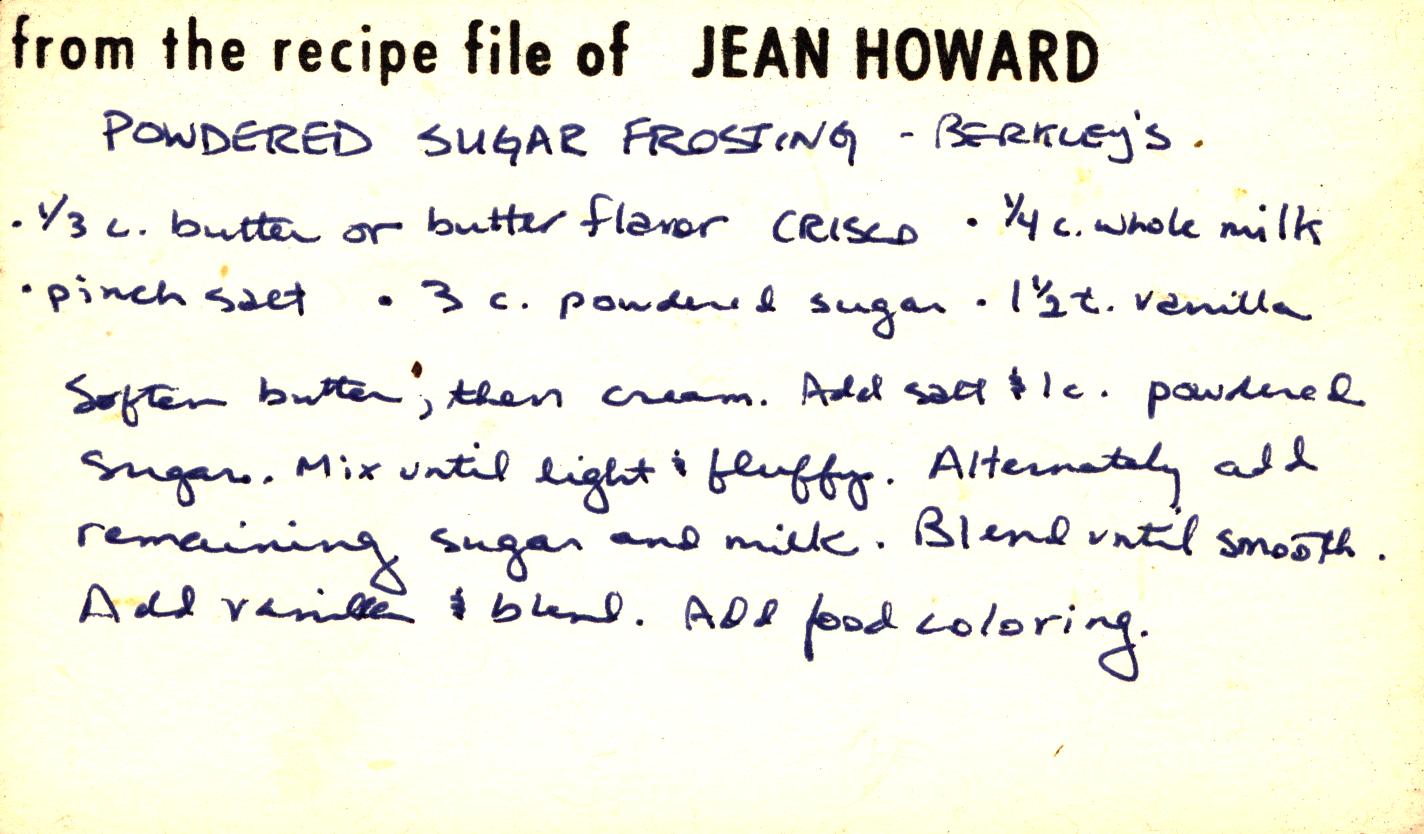 from the recipe file of JEAN HOWARD
POWDERED SUGAR FROSTING - BERKLEY'S.
· 1/3 c. butter or butter flavor CRISCO · 1/4 c. whole milk
· pinch salt · 3 c. powdered sugar · 1 1/2 t. vanilla
Soften butter; then cream. Add salt & 1 c. powdered
sugar. Mix until light & fluffy. Alternately add
remaining sugar and milk. Blend until smooth.
Add vanilla & blend. Add food coloring.